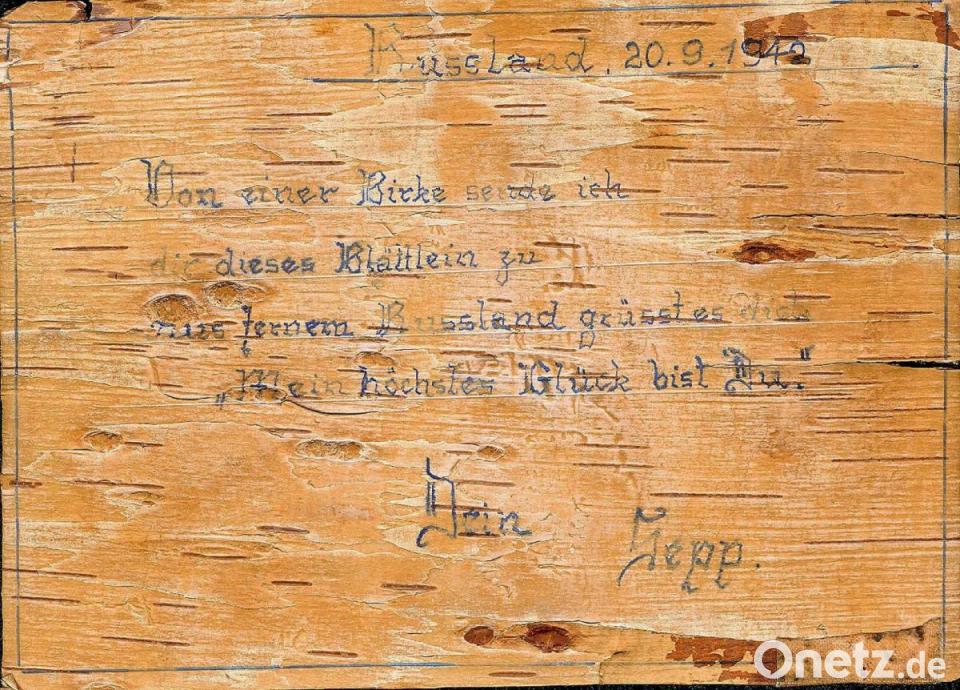 Russland, 20.9.1942
Von einer Birke sende ich
dir dieses Blättlein zu
aus fernem Russland grüsst es dich
„Mein höchstes Glück bist Du."
Dein Sepp.
Onetz.de